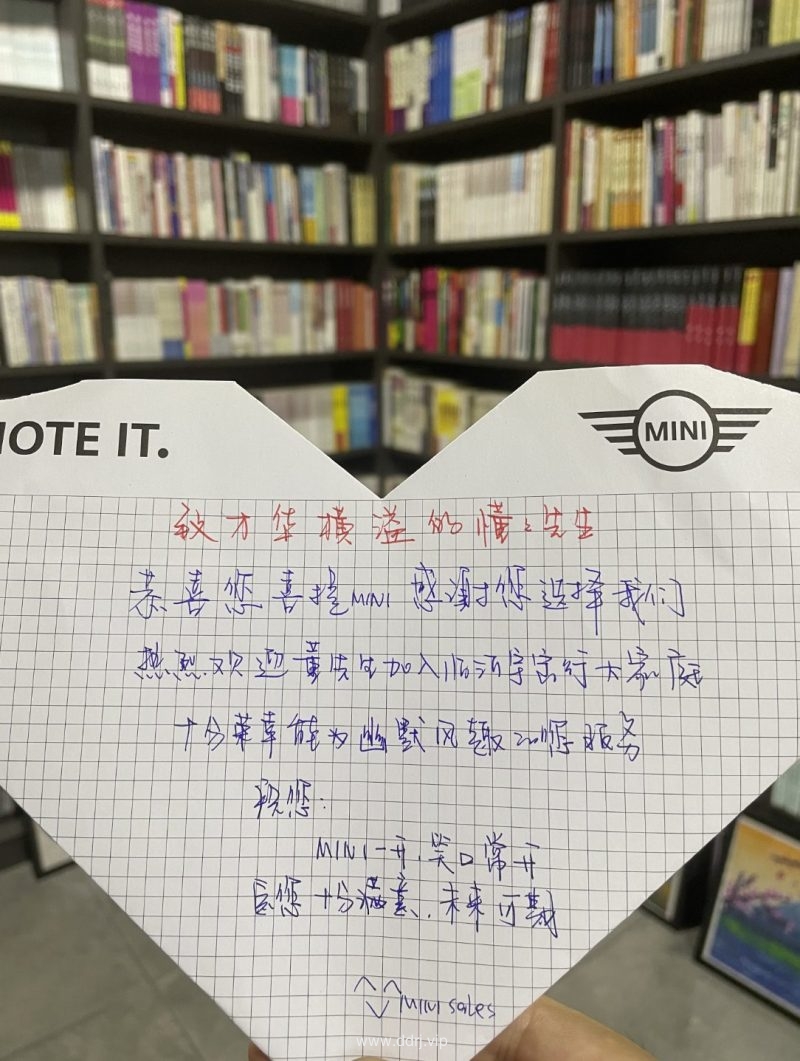 NOTE IT.
MINI
致才华横溢的懂懂先生
恭喜您喜提MINI 感谢您选择我们
热烈欢迎董先生加入临沂宇宝行大家庭
十分荣幸能为幽默风趣的您服务
祝您：
MINI一开，笑口常开
包您十分满意，未来可期
MINI sales
www.ddrj.vip